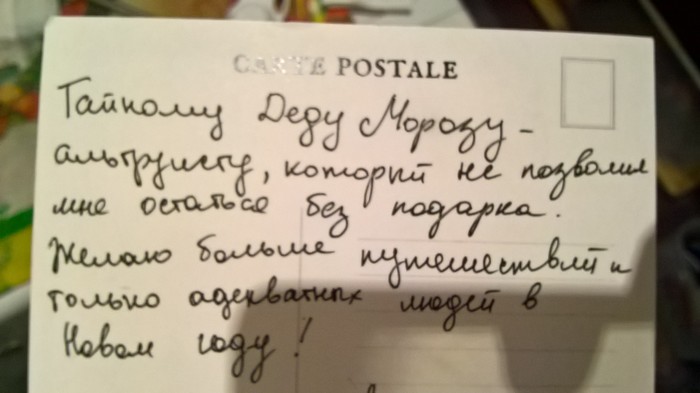 CARTE POSTALE
Тайному Деду Морозу -
альтруисту, который не позволил
мне остаться без подарка.
Желаю больше путешествий и
только адекватных людей в
Новом году!